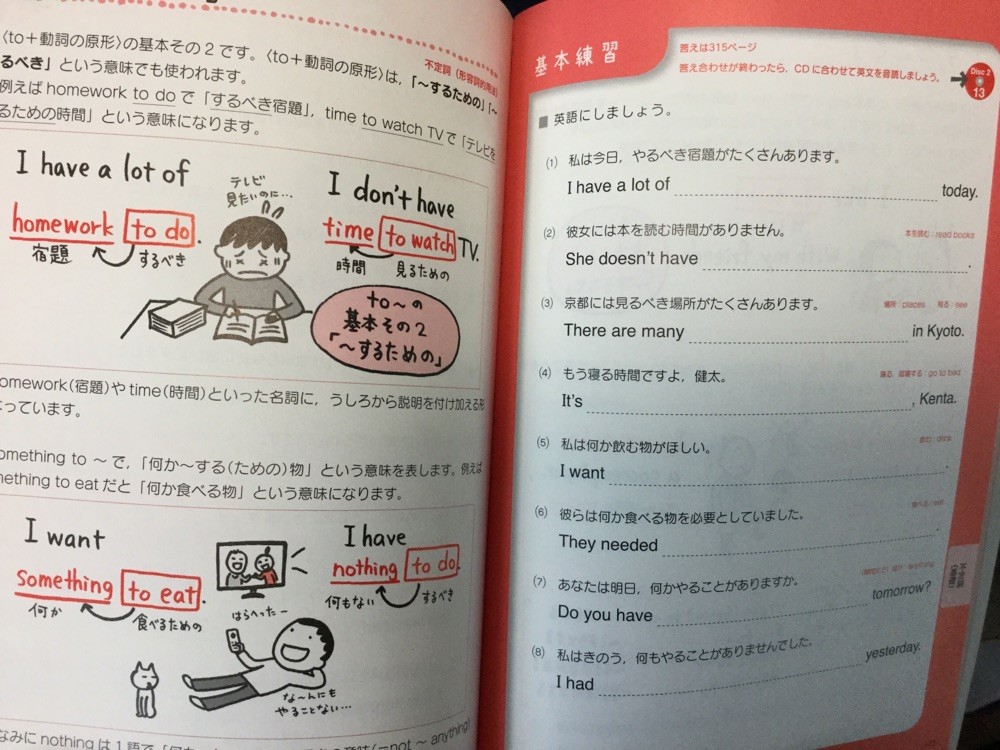 〈to＋動詞の原形〉の基本その2です。〈to＋動詞の原形〉は,「～するための」「～
不定詞（形容詞的用法）
るべき」という意味でも使われます。
例えば homework to do で「するべき宿題」, time to watch TV で「テレビを
るための時間」という意味になります。
I have a lot of
homework to do.
宿題 するべき
テレビ
見たいのに…
I don't have
time to watch TV.
時間 見るための
to～の
基本その2
「～するための」
omework(宿題)や time(時間)といった名詞に, うしろから説明を付け加える形
っています。
omething to ～で,「何か～する(ための)物」という意味を表します。例えば
mething to eat だと「何か食べる物」という意味になります。
I want
something to eat.
何か 食べるための
はらへったー
I have
nothing to do.
何もない するべき
な～んにも
やることない…
なみに nothing は1語で
(=not ～ anything)
基本練習
答えは315ページ
答え合わせが終わったら, CDに合わせて英文を音読しましょう。
Disc 2
13
■ 英語にしましょう。
(1) 私は今日, やるべき宿題がたくさんあります。
I have a lot of today.
(2) 彼女には本を読む時間がありません。
本を読む：read books
She doesn't have .
(3) 京都には見るべき場所がたくさんあります。
場所：places 見る：see
There are many in Kyoto.
(4) もう寝る時間ですよ, 健太。
go to bed
It's , Kenta.
(5) 私は何か飲む物がほしい。
飲む：drink
I want .
(6) 彼らは何か食べる物を必要としていました。
食べる：eat
They needed .
(7) あなたは明日, 何かやることがありますか。
Do you have tomorrow?
(8) 私はきのう, 何もやることがありませんでした。
I had yesterday.